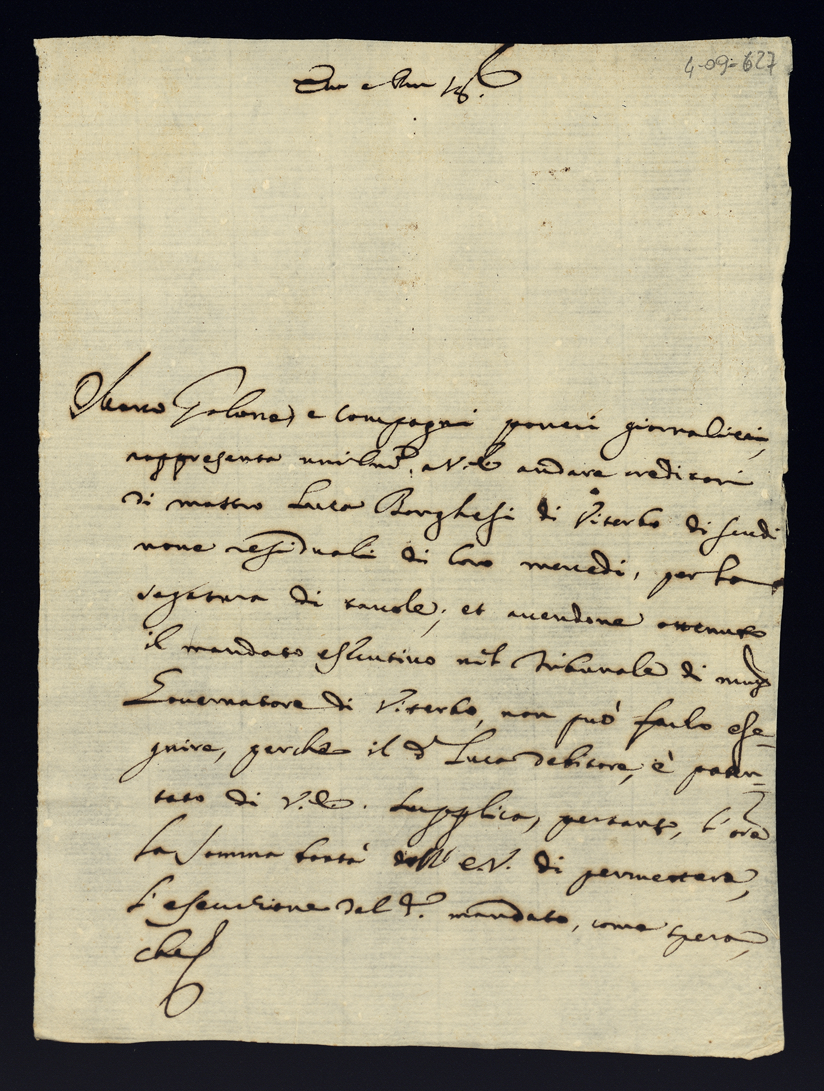 4-09-627
e
e compagni poveri giornalieri,
rappresenta a V.E. andare creditori
di mastro Luca Borghesi di Viterbo di scudi
nove residuali di loro mercedi, per la
segatura di tavole; et avendone ottenuto
il mandato esecutivo nel Tribunale di
Governatore di Viterbo, non può farlo ese-
guire, perche il d.º Luca debitore, è paten-
tato di V.E. Supplica, pertanto, l'ore
la somma bontà dell' E.V. di permettere,
l'esecuzione del d.º mandato, come spera,
che